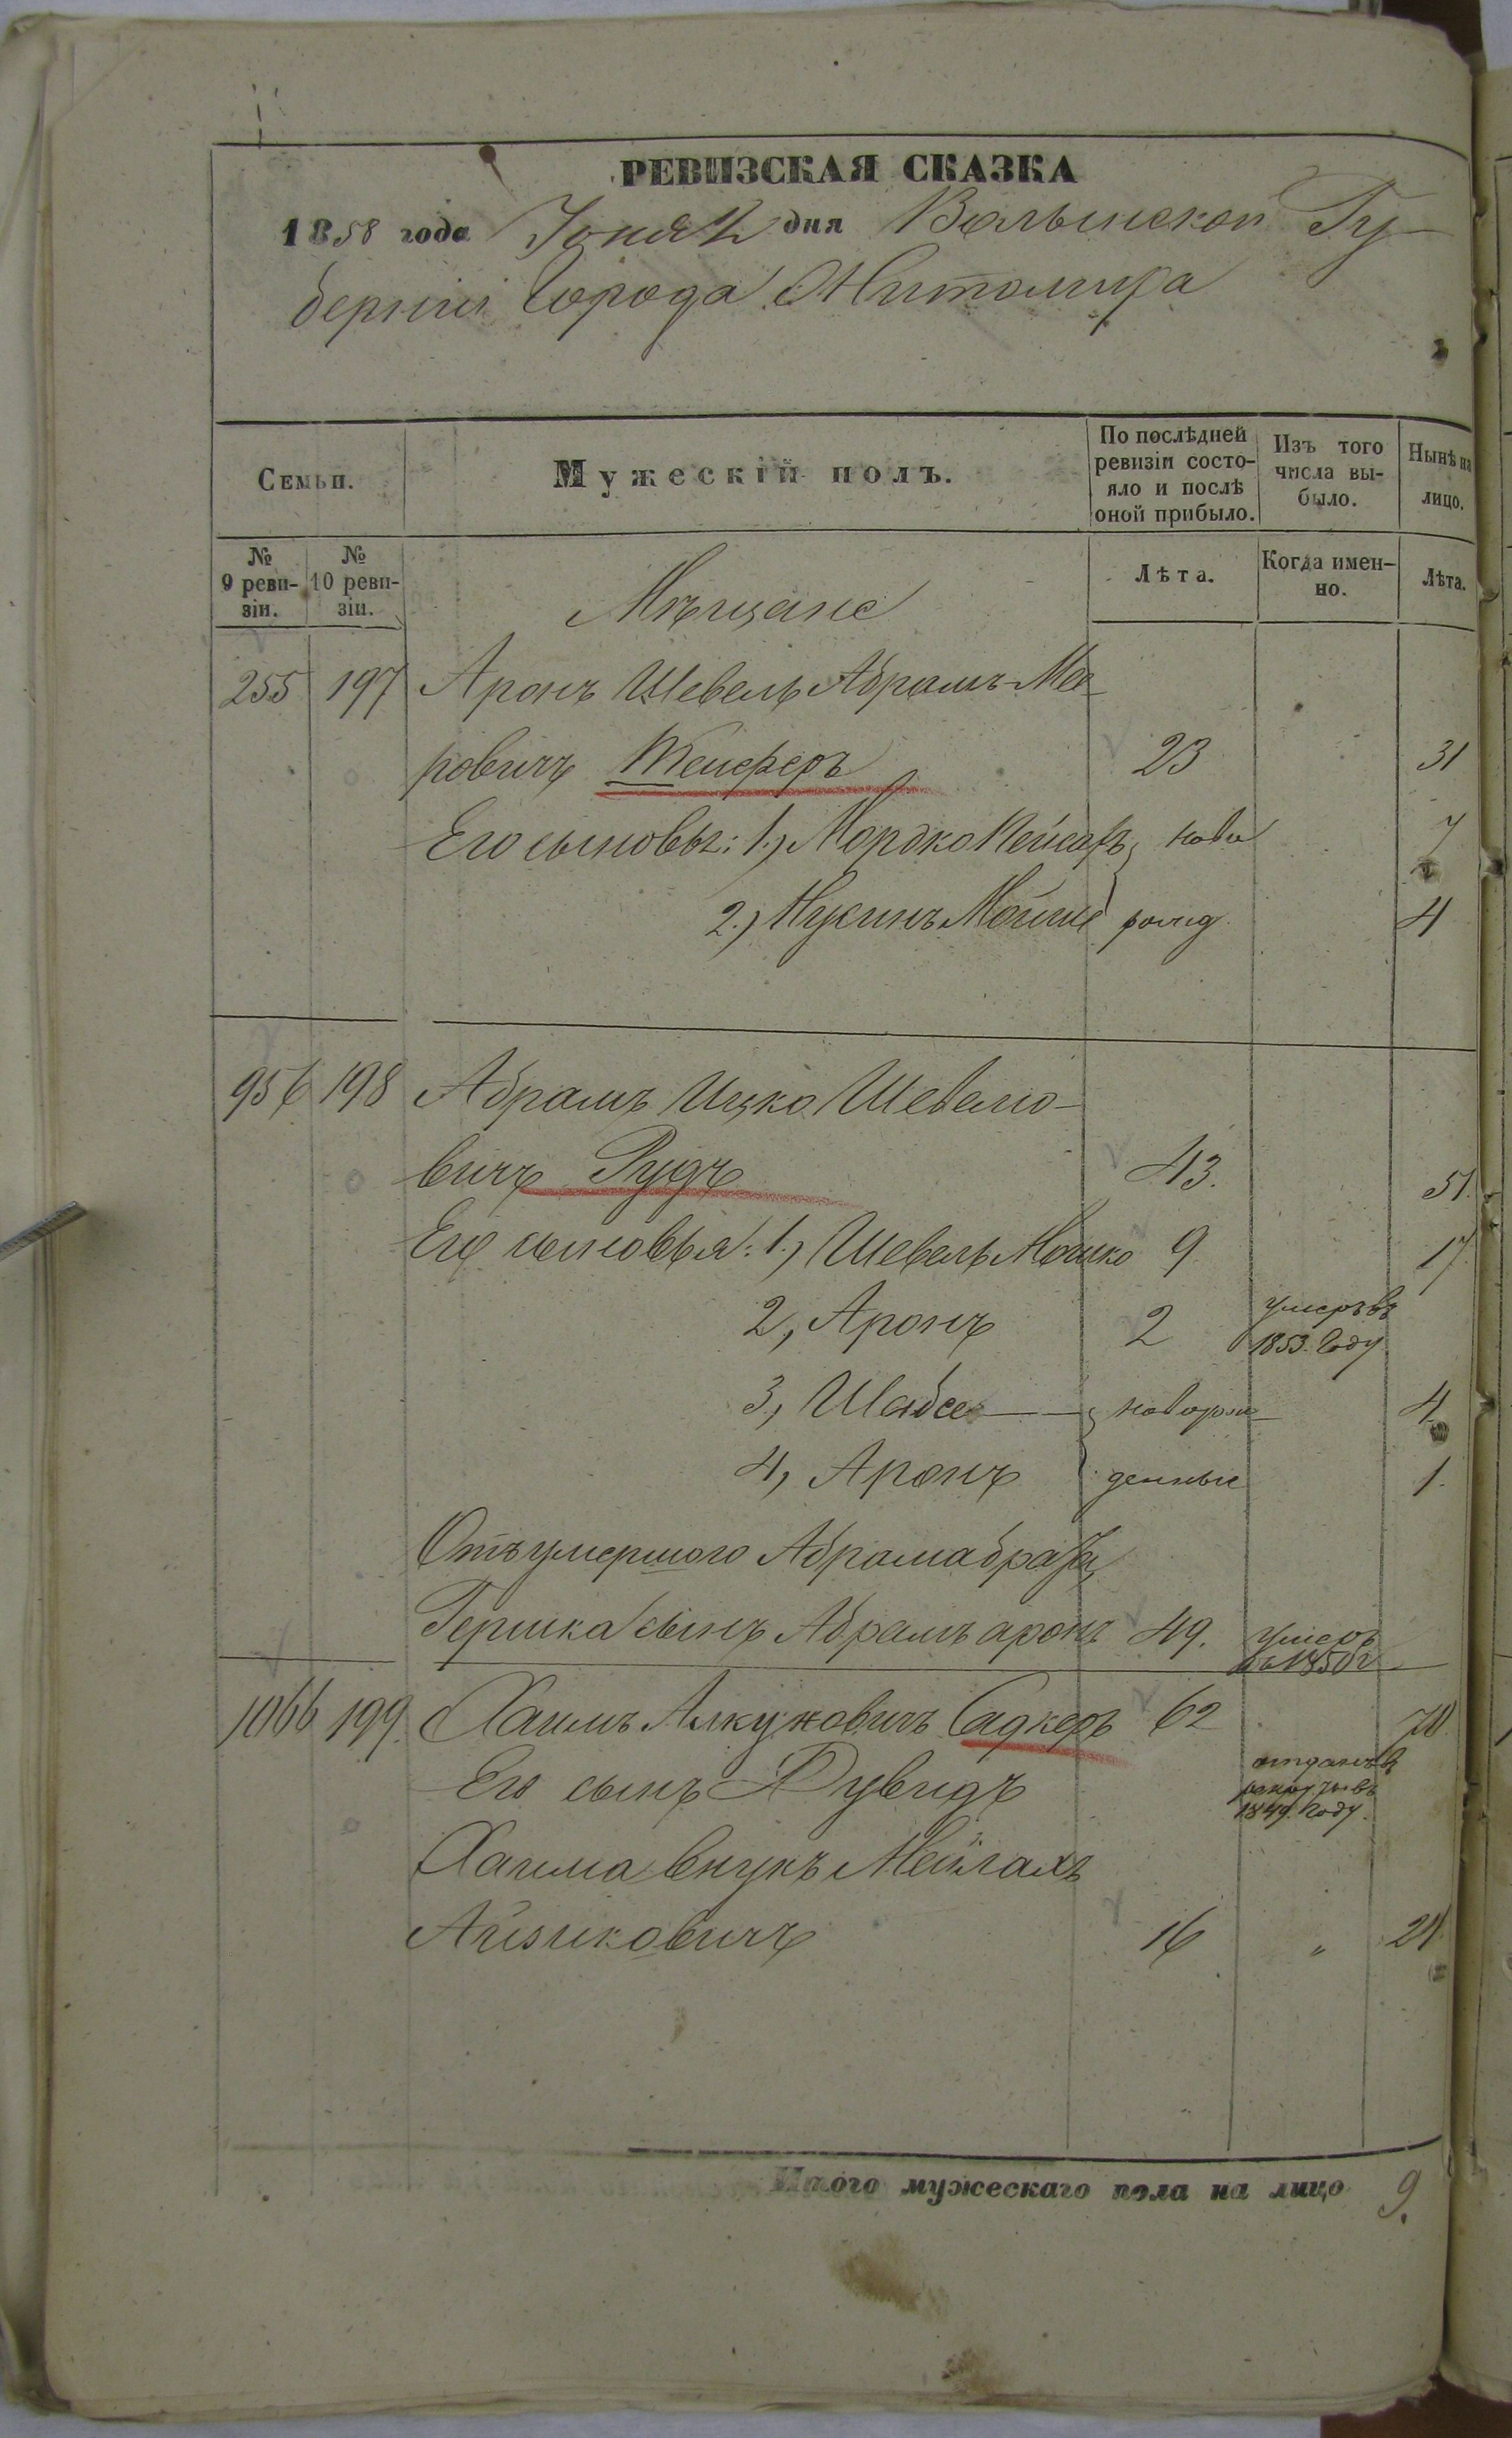 РЕВИЗСКАЯ СКАЗКА
1858 года Іюня 12 дня Волынской Гу-
берніи Города Житомира
Семьи. Мужескій полъ. По послѣдней ревизіи состо- яло и послѣ оной прибыло. Изъ того числа вы- было. Нынѣ на лицо.
№ 9 реви- зіи. № 10 реви- зіи. Лѣта. Когда имен- но. Лѣта.
Мѣщане
255 197 Аронъ Шевель Абрамъ Мее
ровичъ 23 31
Его сыновья: 1.) Мордко Пейсахъ ново 7
2.) Нухимъ Мойше рожд. 4
956 198 Абрамъ Ицко Шевелю-
вичъ Рудъ 43. 51.
Его сыновья: 1.) Шевель Мошко 9 17
2, Аронъ 2 умеръ въ 1853. Году
3, Шабсе новорож 4
4, Аронъ денные 1.
Отъ умершого Абрама брата
Гершка сынъ Абрамъ аронъ 49. умеръ въ 1850 г
1066 199. Хаимъ Садкеръ 62 70.
Его сынъ Дувидъ отданъ въ рекруты въ 1849. Году.
Хаима внукъ
Айзиковичъ 16 „ 24.
Итого мужескаго пола на лицо 9.